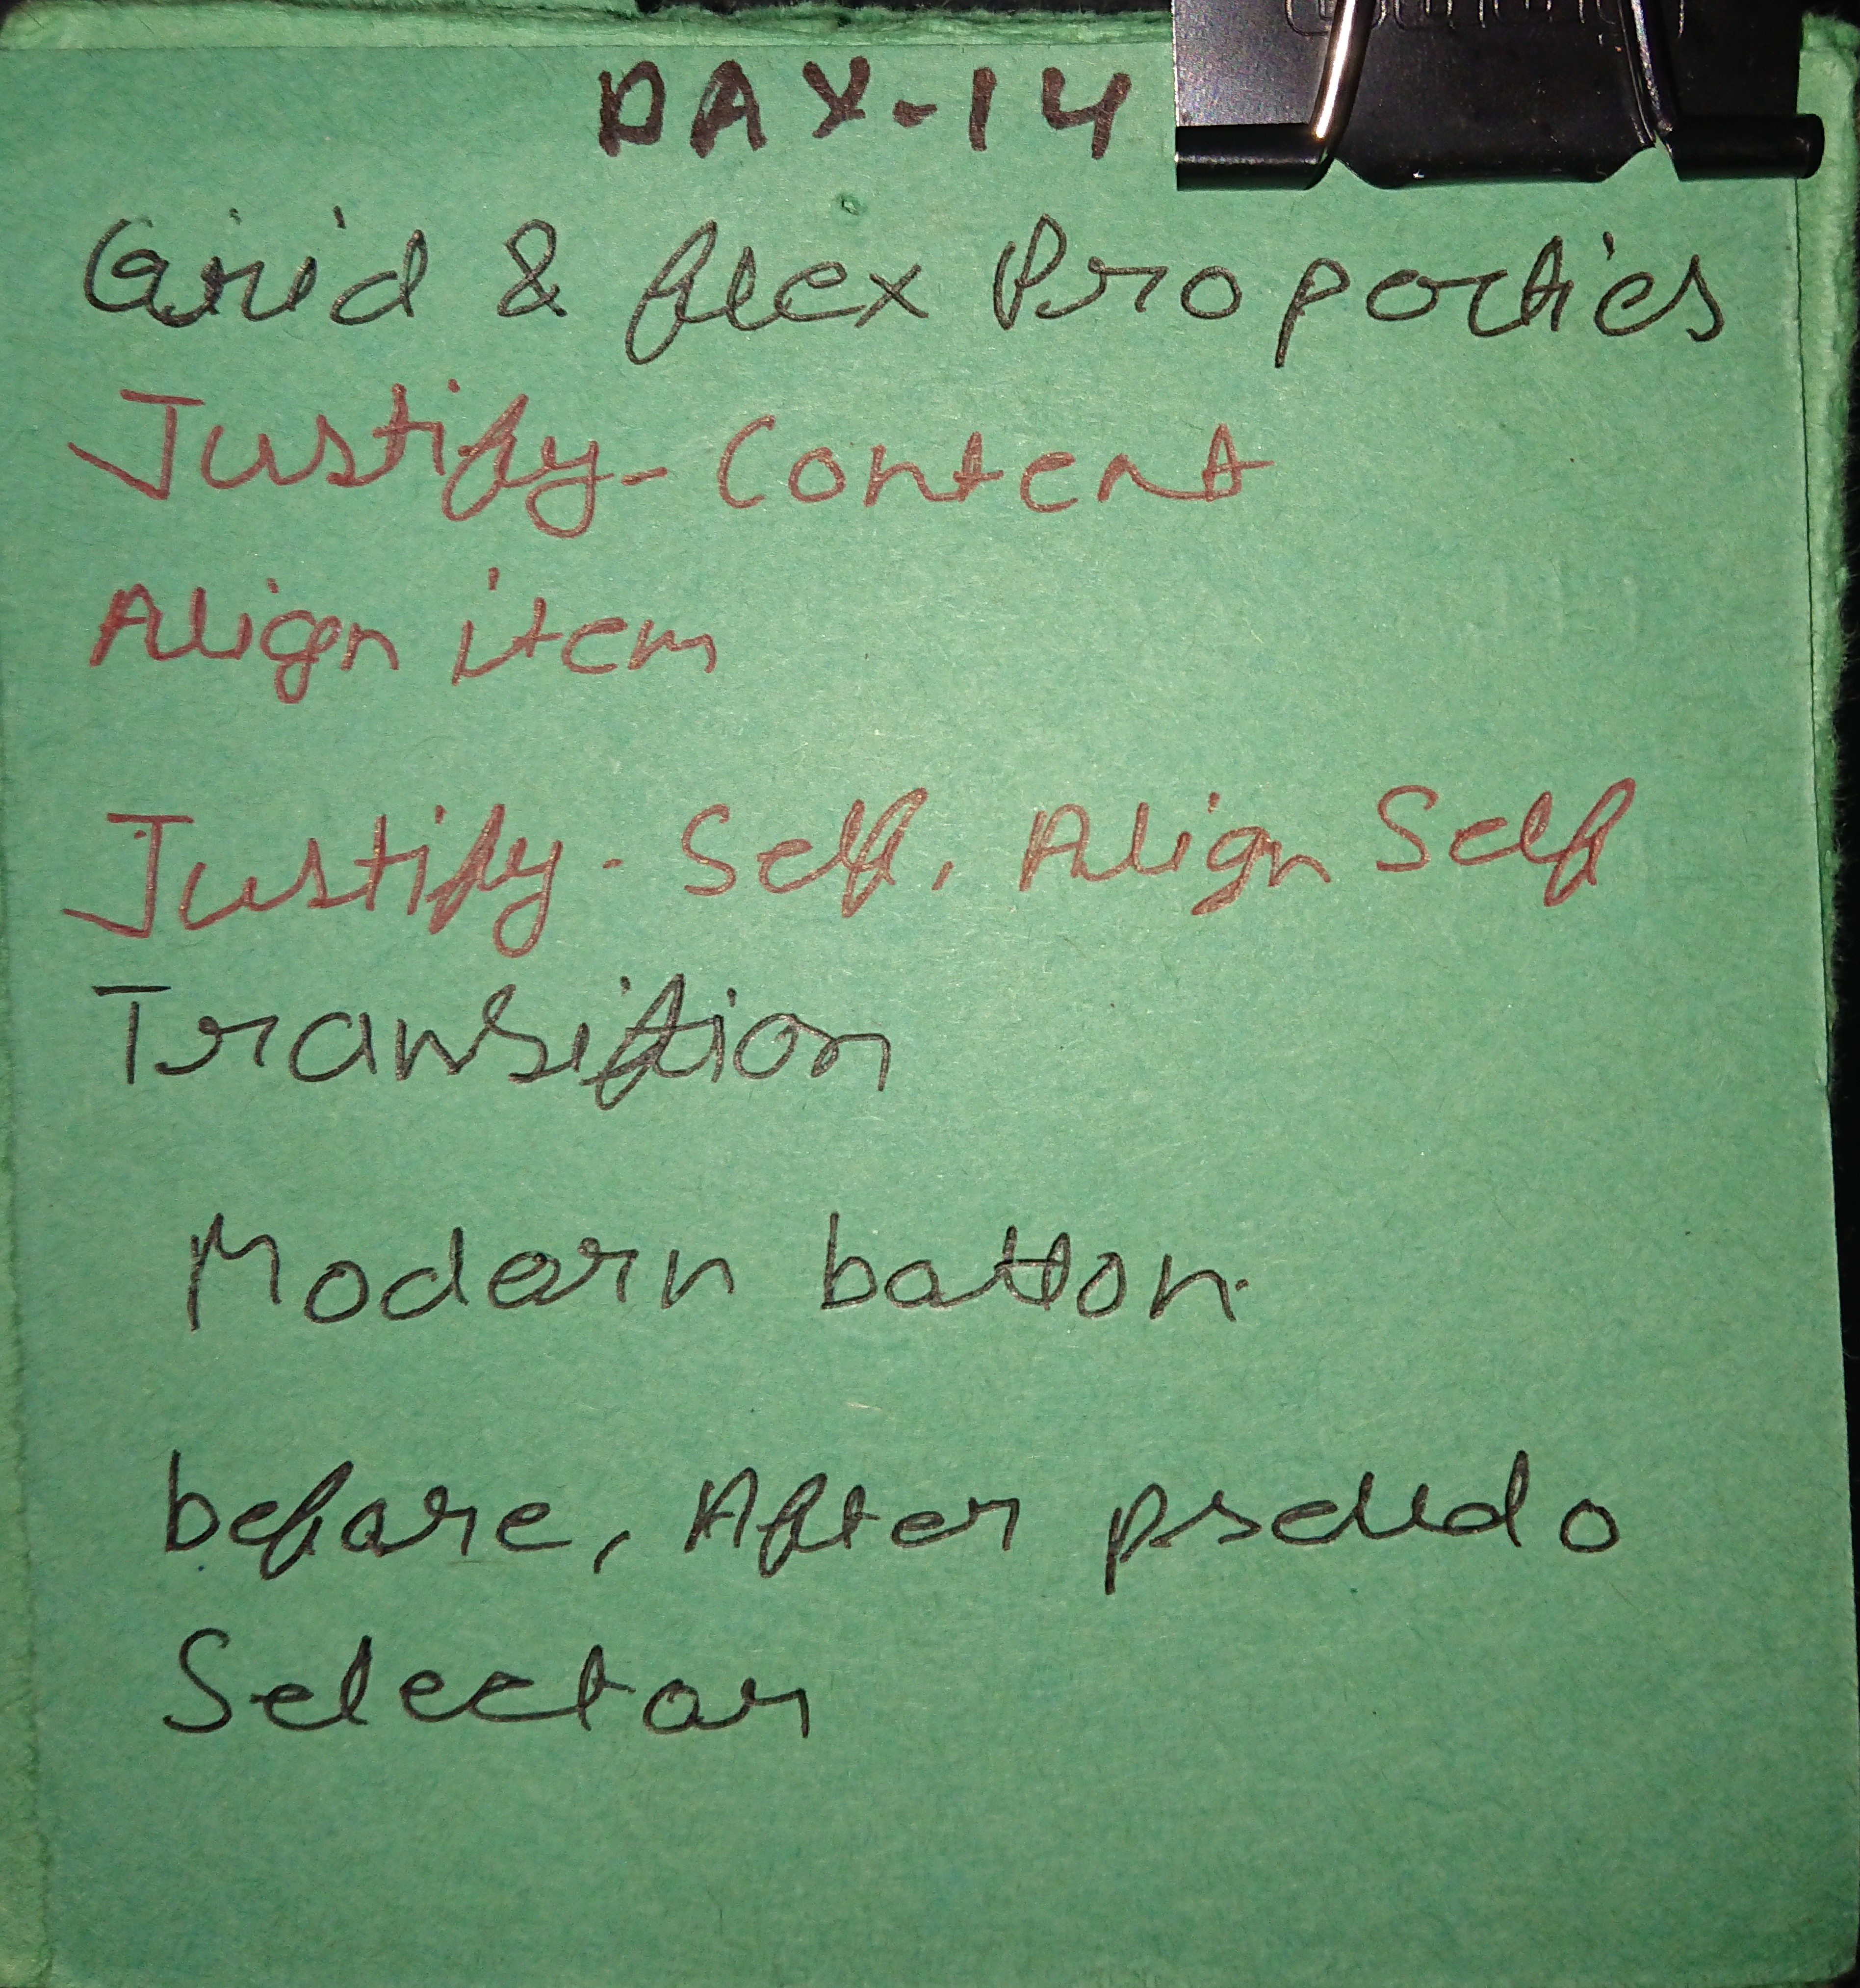 DAY-14
Grid & flex Properties
Justify-Content
Align item
Justify-Self, Align Self
Transition
Modern button.
before, After pseudo
Selector